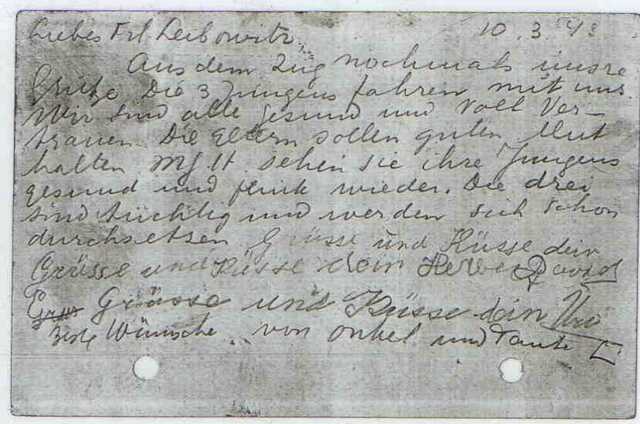 Liebes Frl Leibowitz, 10.3.43
Aus dem Zug nochmals unsre
Grüße Die 3 Jungens fahren mit uns.
Wir sind alle gesund und voll Ver-
trauen. Die Eltern sollen guten Mut
halten mglt sehen sie ihre Jungens
gesund und flink wieder. Die drei
sind tüchtig und werden sich schon
durchsetzen Grüsse und Küsse dein
Grüsse und Küsse dein David
Grüsse und Küsse dein
beste Wünsche von Onkel und Tante